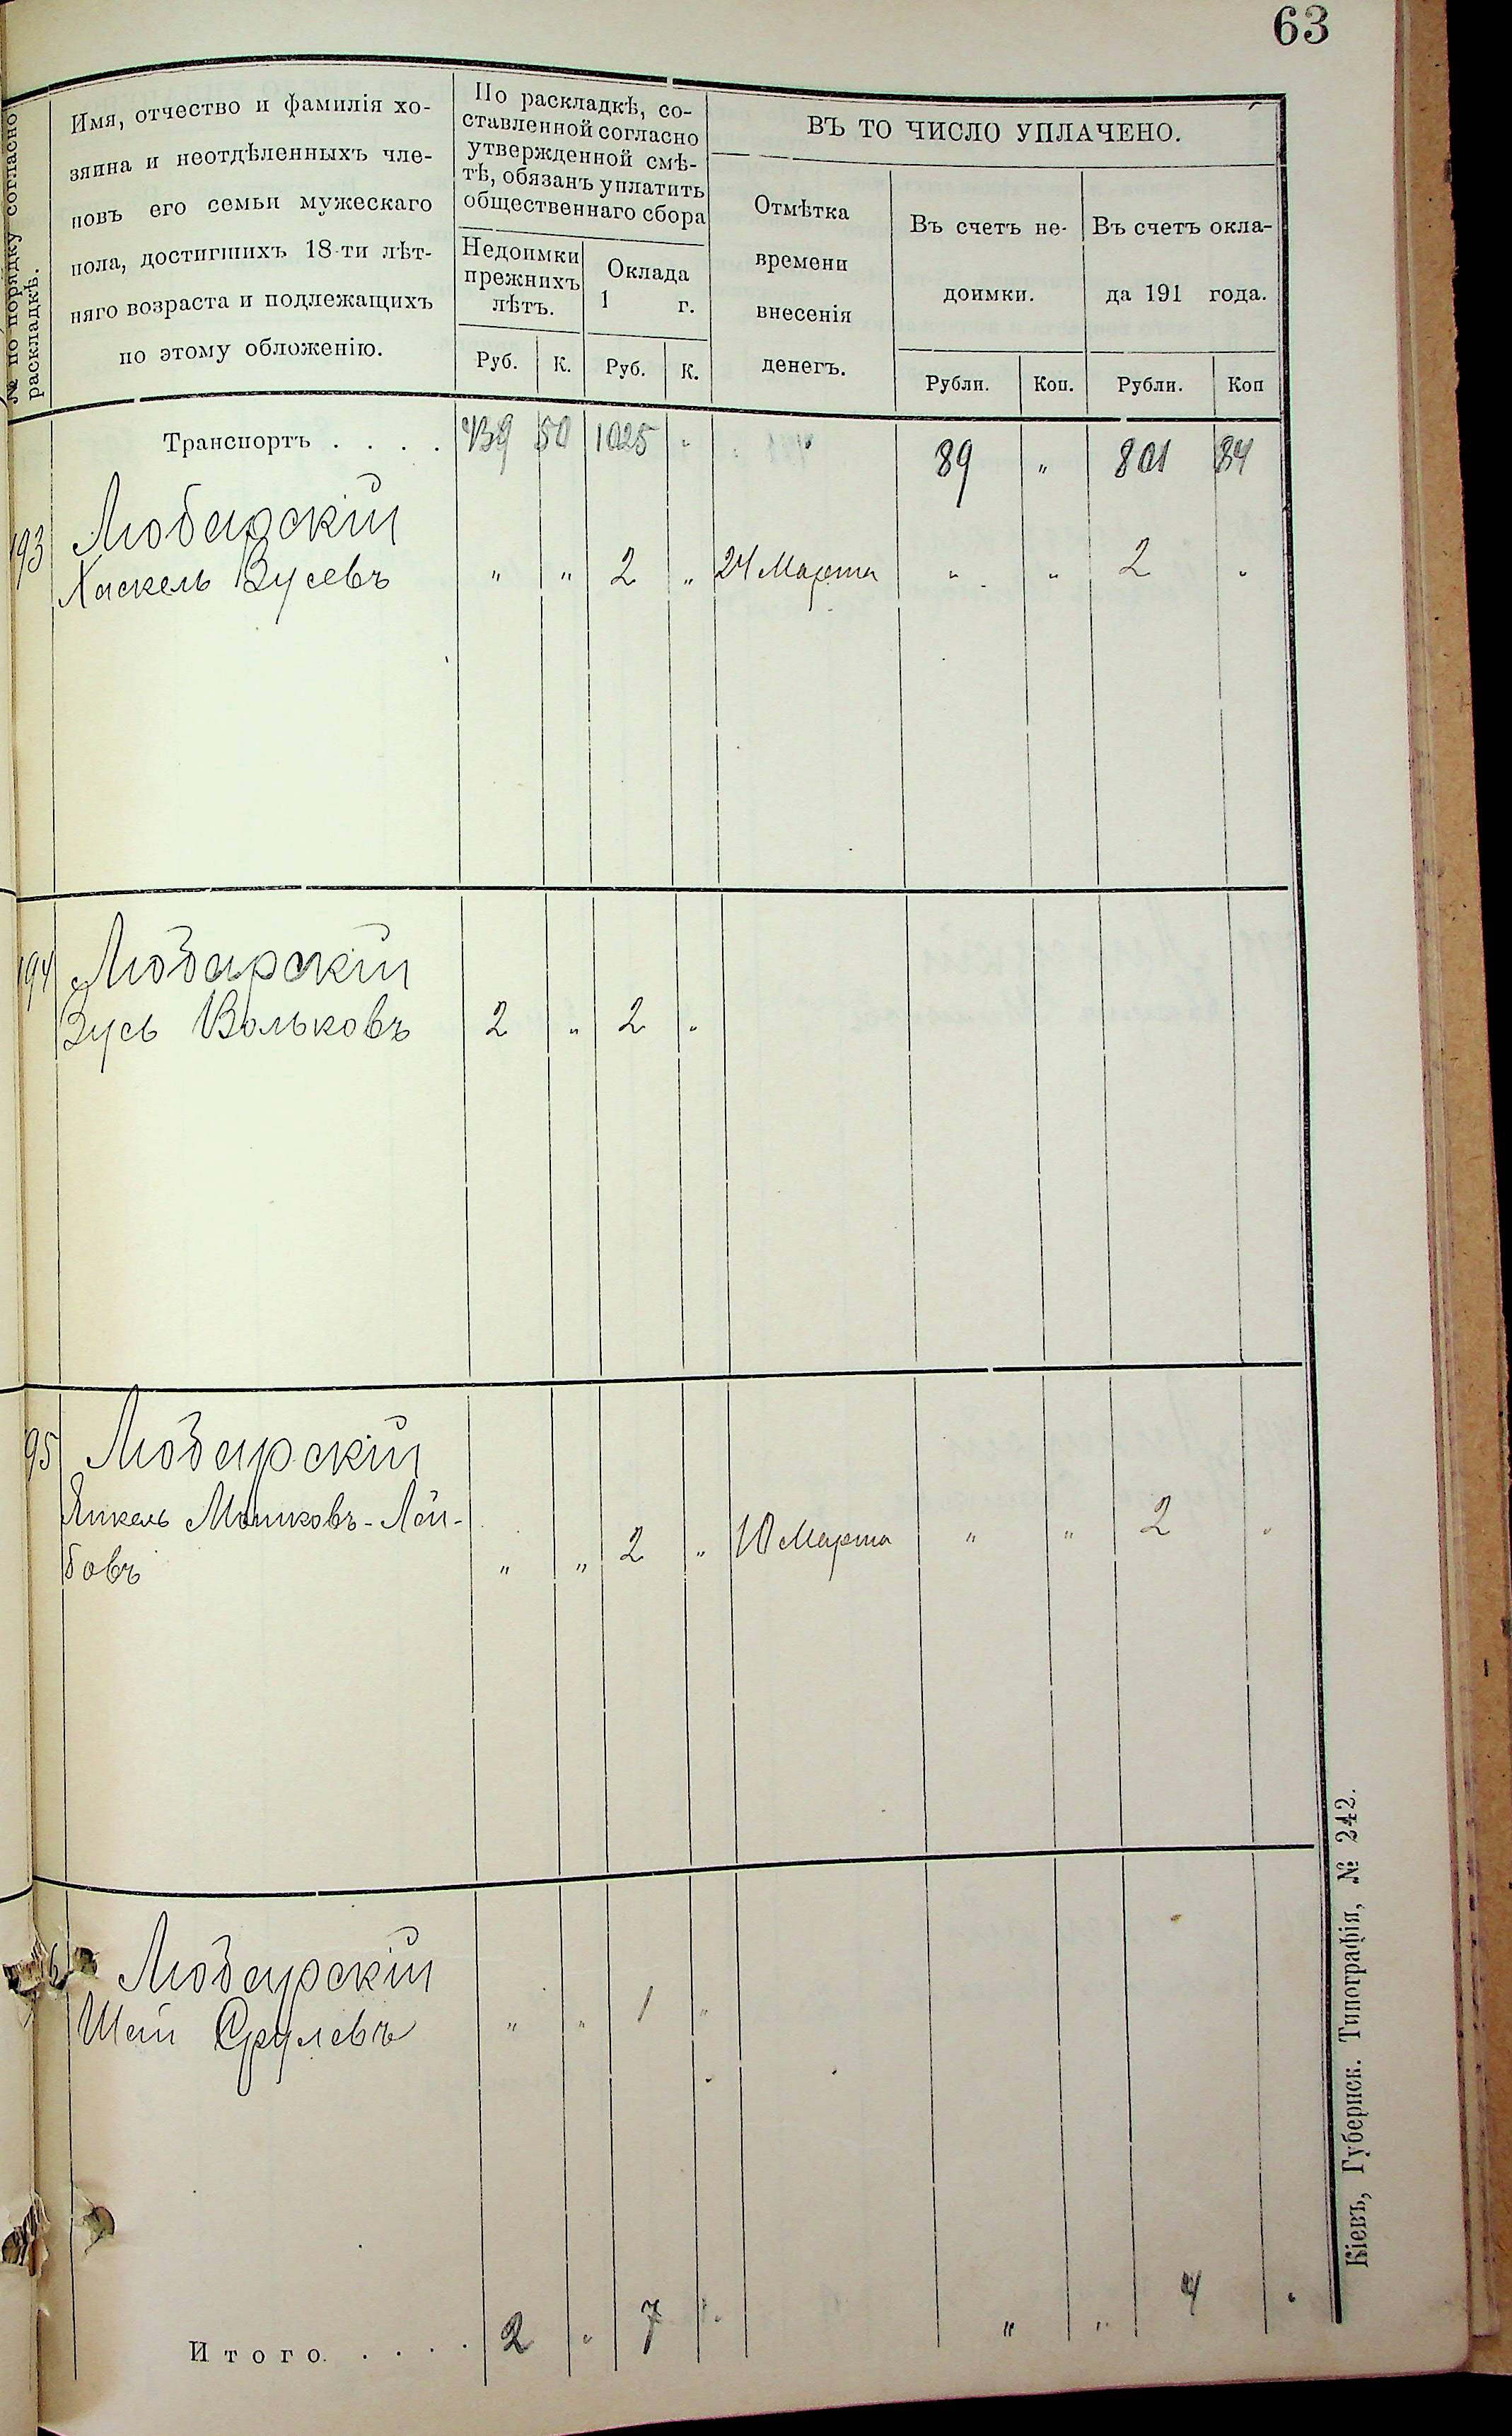 63
№ по порядку согласно
раскладкѣ.
Имя, отчество и фамилія хо-
зяина и неотдѣленныхъ чле-
новъ его семьи мужескаго
пола, достигшихъ 18-ти лѣт-
няго возраста и подлежащихъ
по этому обложенію.
По раскладкѣ, со-
ставленной согласно
утвержденной смѣ-
тѣ, обязанъ уплатить
общественнаго сбора
Недоимки
прежнихъ
лѣтъ.
Оклада
1 г.
Руб. К. Руб. К.
ВЪ ТО ЧИСЛО УПЛАЧЕНО.
Отмѣтка
времени
внесенія
денегъ.
Въ счетъ не-
доимки.
Въ счетъ окла-
да 191 года.
Рубли. Коп. Рубли. Коп
Транспортъ . . . . 439 50 1025 " " 89 " 801 84
193 Любарскій
Хаскель Зусевъ " " 2 " 24 Марта " " 2 "
194 Любарскій
Зусь Вольковъ 2 " 2 "
95 Любарскій
Янкель Мошковъ-Лей-
бовъ " " 2 " 10 Марта " " 2 "
6 Любарскій
Шая Срулевъ " " 1 "
Итого. . . . . 2 " 7 " " " 4 "
Кіевъ, Губернск. Типографія, № 242.